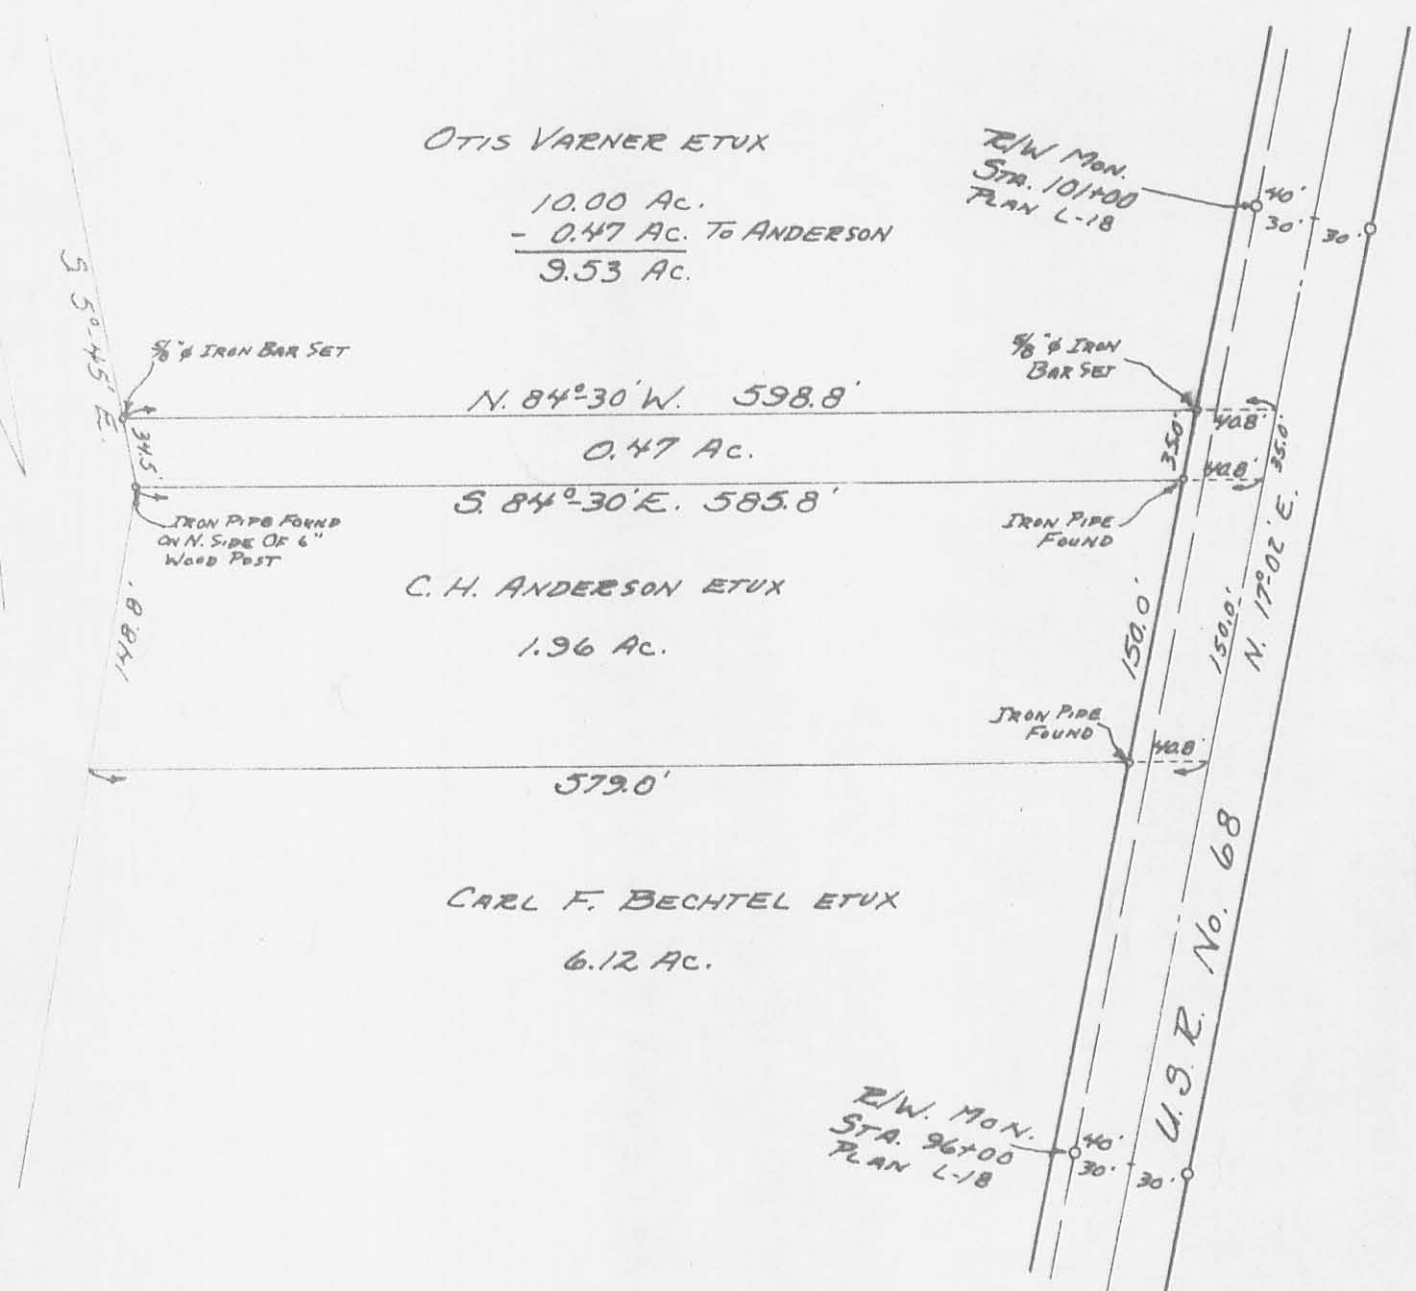 OTIS VARNER ETUX
10.00 AC.
- 0.47 AC. TO ANDERSON
9.53 AC.
R/W MON.
STA. 101+00
PLAN L-18
40'
30'
30'
S 5°-45' E.
5/8"⌀ IRON BAR SET
5/8"⌀ IRON
BAR SET
N. 84°-30' W. 598.8'
34.5'
0.47 AC.
35.0'
40.8'
40.8'
35.0'
S. 84°-30' E. 585.8'
IRON PIPE FOUND
ON N. SIDE OF 6"
WOOD POST
IRON PIPE
FOUND
C. H. ANDERSON ETUX
1.96 AC.
148.8'
150.0'
150.0'
N. 17°-02' E.
IRON PIPE
FOUND
40.8'
579.0'
CARL F. BECHTEL ETUX
6.12 AC.
U.S.R. No. 68
R/W. MON.
STA. 96+00
PLAN L-18
40'
30'
30'